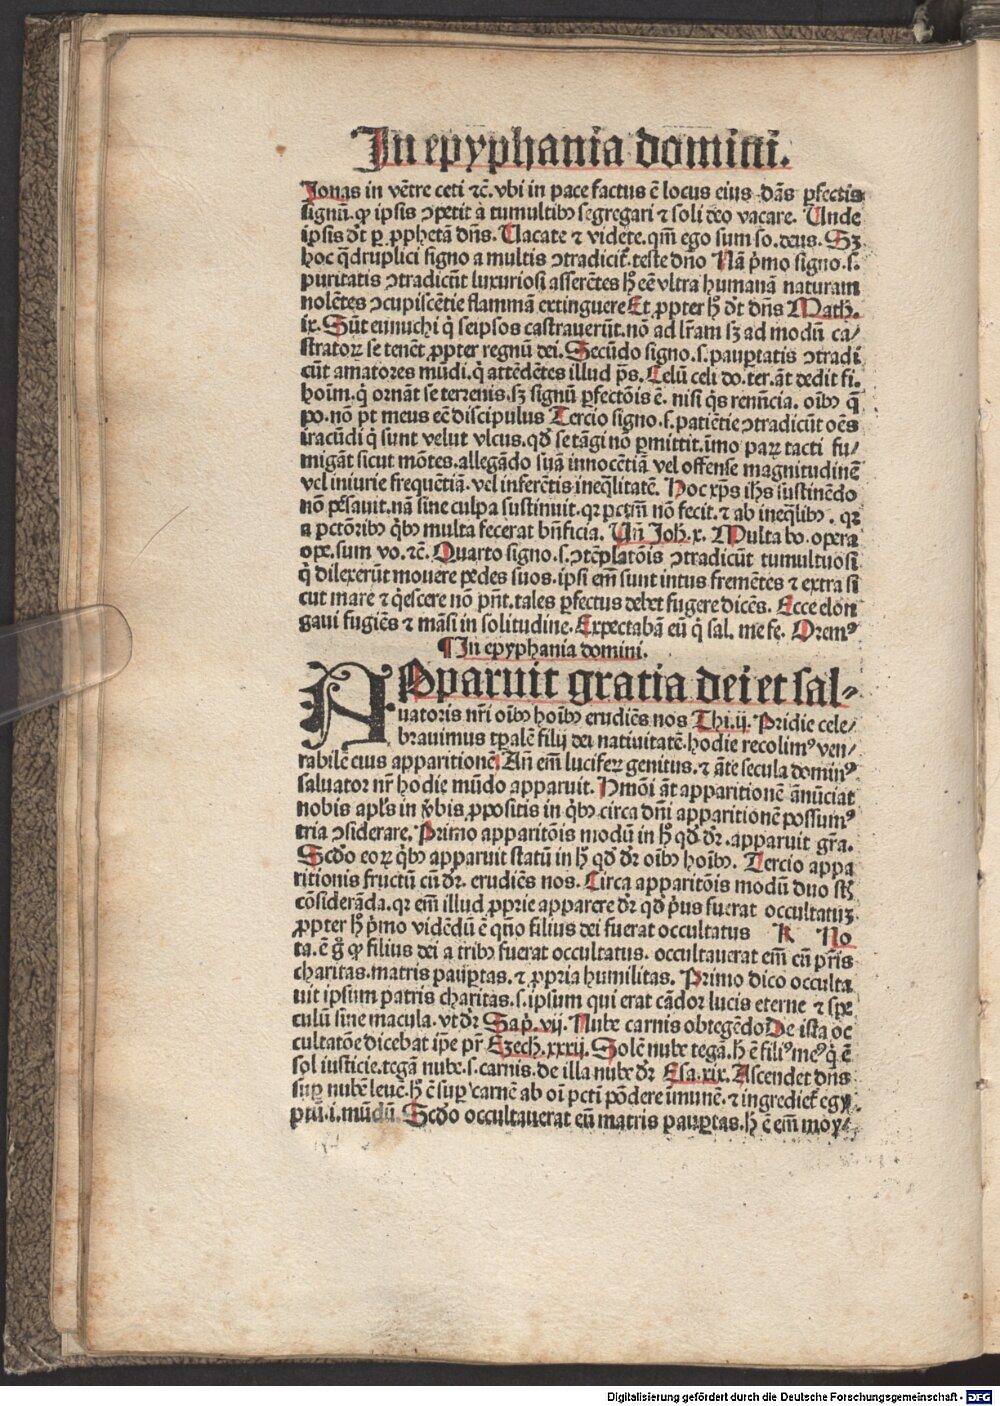 In epyphania domini.
Jonas in vētre ceti ⁊c̄. vbi in pace factus ē locus eius dās ꝑfectis
signū. ꝙ ipsis ↄpetit à tumultibꝰ segregari ⁊ soli deo vacare. Unde
ipsis dr̄ ꝑ ꝓphetā dn̄s. Uacate ⁊ videte. qm̄ ego sum so. deus. Sꝫ
hoc q̄druplici signo a multis ↄtradicit᷑. teste dn̄o Nā pͥmo signo .s.
puritatis ↄtradicūt luxuriosi asserētes hͦ eē vltra humanā naturam
nolētes ↄcupiscētie flammā extinguere Et ꝓpter hͦ dt̄ dn̄s Math.
ix. Sūt eunuchi qͥ seipsos castrauerūt. nō ad lr̄am sꝫ ad modū ca/
stratoꝝ se tenēt ꝓpter regnū dei. Secūdo signo .s. pauꝑtatis ↄtradi
cūt amatores mūdi. qͥ attēdētes illud ps̄. Celū celi do. ter. āt dedit fi.
hoīm. qͥ ornāt se terrenis. sꝫ signū ꝑfectōis ē. nisi qͥs renūcia. oībꝰ q̄
po. nō pt̄ meus eē discipulus Tercio signo .s. patiētie ↄtradicūt oēs
iracūdi qͥ sunt velut vlcus. qd̄ se tāgi nō ꝑmittit. īmo paꝝ tacti fu/
migāt sicut mōtes. allegādo suā innocētiā vel offense magnitudinē
vel iniurie frequētiā. vel inferētis ineq̄litatē. Hoc xp̄s ih̄s sustinēdo
nō pēsauit. nā sine culpa sustinuit. qꝛ pctm̄ nō fecit. ⁊ ab ineq̄libꝰ. qꝛ
a pctōribꝰ qͥbꝰ multa fecerat bn̄ficia. Uñ Joh. x. Multa bo. opera
ope. sum vo. ⁊c̄. Quarto signo .s. ↄtēplatōis ↄtradicūt tumultuosi
qͥ dilexerūt mouere pedes suos. ipsi em̄ sunt intus fremētes ⁊ extra si
cut mare ⁊ qͥescere nō pn̄t. tales ꝑfectus debet fugere dicēs. Ecce elon
gaui fugiēs ⁊ māsi in solitudine. Expectabā eū qͥ sal. me fe. Oremꝰ
¶In epyphania domini.
APparuit gratia dei et sal-
uatoris nr̄i oībꝰ hoībꝰ erudiēs nos Thi. ij. Pridie cele/
brauimus tꝑalē filij dei natiuitatē. hodie recolimꝰ ven/
rabilē eius apparitionē Añ em̄ luciferꝝ genitus. ⁊ āte secula dominꝰ
saluator nr̄ hodie mūdo apparuit. Hmōi āt apparitionē ānūciat
nobis apl's in v̄bis ꝓpositis in qͥbꝰ circa dn̄i apparitionē possumꝰ
tria ↄsiderare. Primo apparitōis modū in hͦ qd̄ dr̄. apparuit gr̄a.
Scd̄o eoꝝ qͥbꝰ apparuit statū in hͦ qd̄ dr̄ oībꝰ hoībꝰ. Tercio appa
ritionis fructū cū dr̄. erudiēs nos. Circa apparitōis modū duo st̄
cōsiderāda. qꝛ em̄ illud ꝓprie apparere dr̄ qd̄ pͥus fuerat occultatū.
ꝓpter hͦ pͥmo vidēdū ē qn̄o filius dei fuerat occultatus R No
ta. ē g̊ ꝙ filius dei a tribꝰ fuerat occultatus. occultauerat em̄ eū pr̄is
charitas. matris pauꝑtas. ⁊ ꝓpria humilitas. Primo dico occulta
uit ipsum patris charitas .s. ipsum qui erat cādor lucis eterne ⁊ spe
culū sine macula. vt dr̄ Sap. vij. Nube carnis obtegēdo De ista oc
cultatōe dicebat ip̄e pr̄ Ezech. xxxij. Solē nube tegā. h̄ ē filiꝰ meꝰ qͥ ē
sol iusticie. tegā nube .s. carnis. de illa nube dr̄ Esa. xix. Ascendet dn̄s
suꝑ nubē leuē. h̄ ē suꝑ carnē ab oī pcti pōdere īmunē. ⁊ ingrediet᷑ egy
ptū .i. mūdū Scd̄o occultauerat eū matris pauꝑtas. h̄ ē em̄ moy/
Digitalisierung gefördert durch die Deutsche Forschungsgemeinschaft - DFG